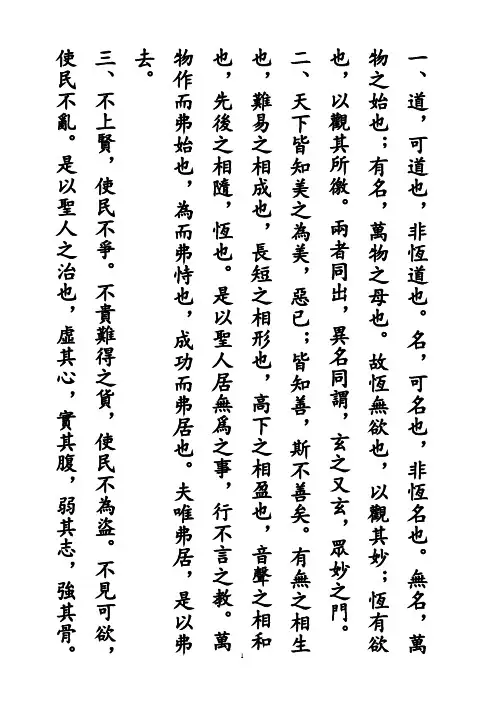 一、道，可道也，非恆道也。名，可名也，非恆名也。無名，萬
物之始也；有名，萬物之母也。故恆無欲也，以觀其妙；恆有欲
也，以觀其所徼。兩者同出，異名同謂，玄之又玄，眾妙之門。
二、天下皆知美之為美，惡已；皆知善，斯不善矣。有無之相生
也，難易之相成也，長短之相形也，高下之相盈也，音聲之相和
也，先後之相隨，恆也。是以聖人居無為之事，行不言之教。萬
物作而弗始也，為而弗恃也，成功而弗居也。夫唯弗居，是以弗
去。
三、不上賢，使民不爭。不貴難得之貨，使民不為盜。不見可欲，
使民不亂。是以聖人之治也，虛其心，實其腹，弱其志，強其骨。
1